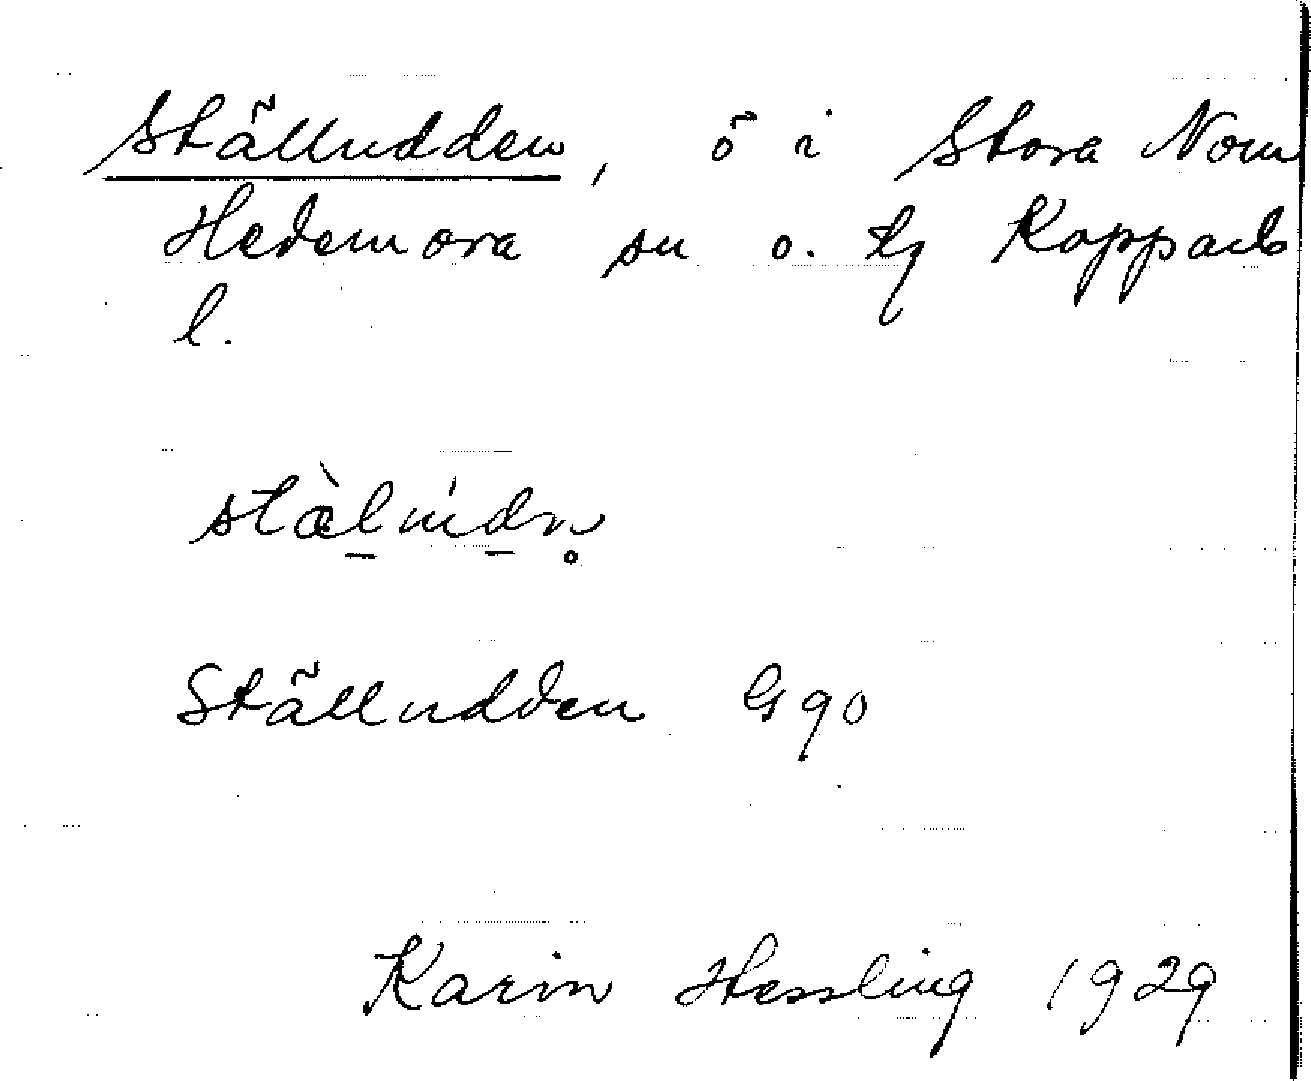 Ställudden, ö i Stora Norn
Hedemora sn o. tg Kopparb
l.
Ställudden G 90
Karin Hessling 1929